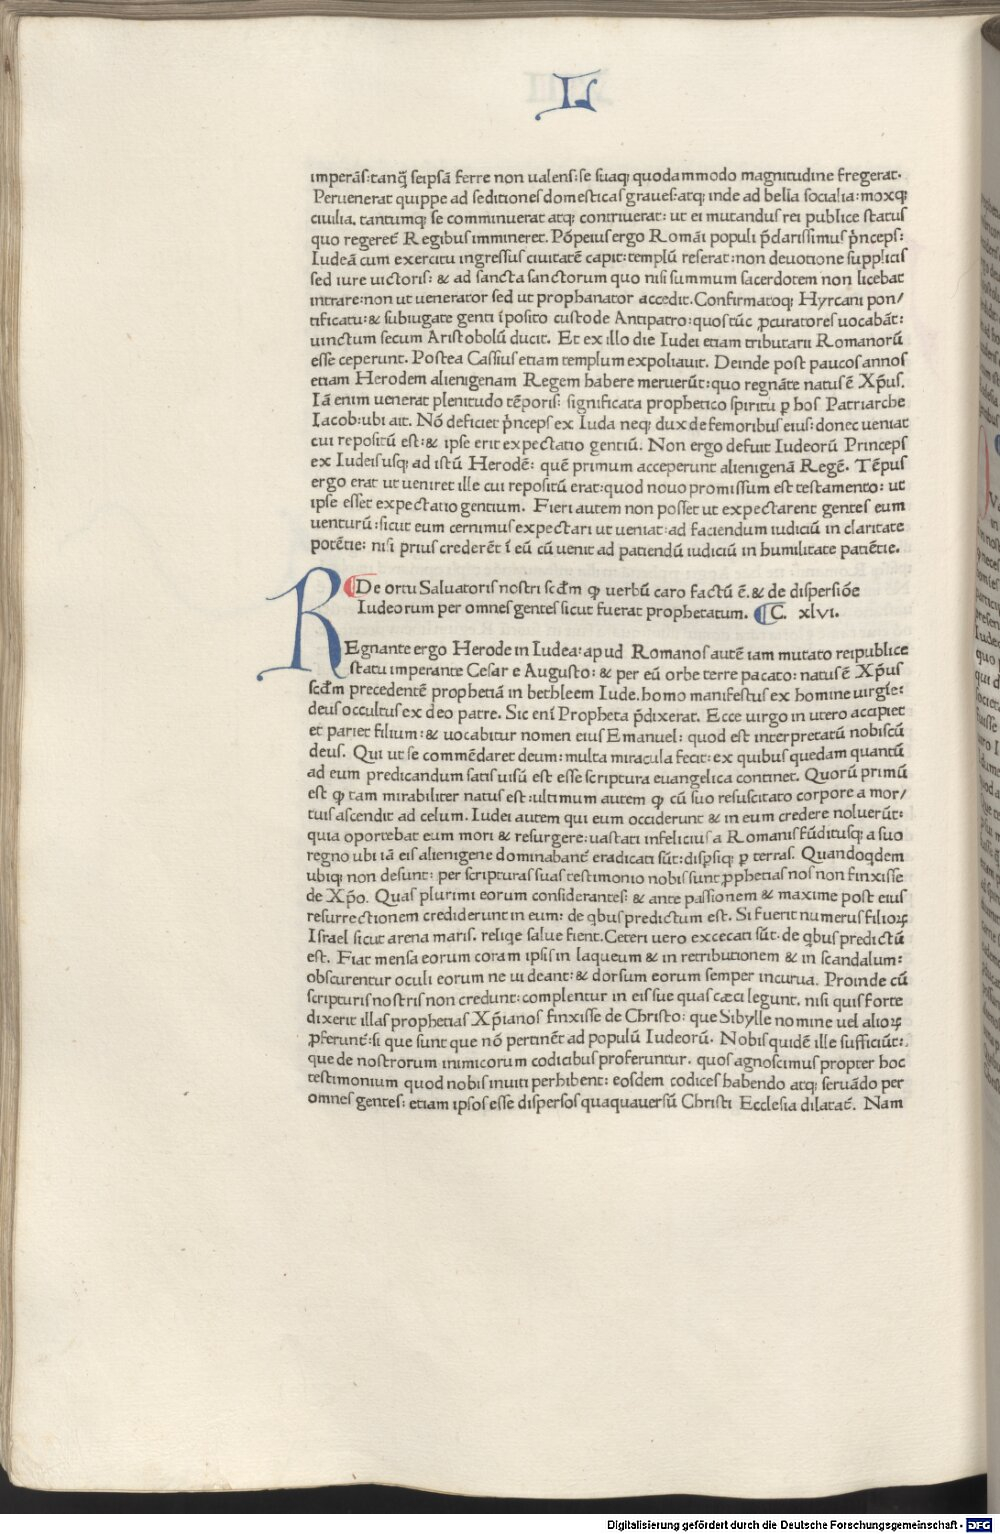 L
imperãs: tanq̃ seipsã ferre non ualens: se suaq; quodammodo magnitudine fregerat.
Peruenerat quippe ad seditiones domesticas graues: atq; inde ad bella socialia: moxq;
ciuilia. tantumq; se comminuerat atq; contriuerat: ut ei mutandus rei publice status
quo regeret̃ Regibus immineret. Põpeius ergo Romãi populi p̃clarissimus p̃nceps:
Iudeã cum exercitu ingressus ciuitatẽ capit: templũ reserat: non deuotione supplicis
sed iure uictoris: & ad sancta sanctorum quo nisi summum sacerdotem non licebat
intrare: non ut uenerator sed ut prophanator accedit. Confirmatoq; Hyrcani pon/
tificatu: & subiugate genti ĩposito custode Antipatro: quos tũc ꝓcuratores uocabãt:
uinctum secum Aristobolũ ducit. Et ex illo die Iudei etiam tributarii Romanorũ
esse ceperunt. Postea Cassius etiam templum expoliauit. Deinde post paucos annos
etiam Herodem alienigenam Regem habere meruerũt: quo regnãte natus ẽ Xp̃us.
Iã enim uenerat plenitudo tẽporis: significata prophetico spiritu ꝑ hos Patriarche
Iacob: ubi ait. Nõ deficiet p̃nceps ex Iuda neq; dux de femoribus eius: donec ueniat
cui repositũ est: & ipse erit expectatio gentiũ. Non ergo defuit Iudeorũ Princeps
ex Iudeis usq; ad istũ Herodẽ: quẽ primum acceperunt alienigenã Regẽ. Tẽpus
ergo erat ut ueniret ille cui repositũ erat: quod nouo promissum est testamento: ut
ipse esset expectatio gentium. Fieri autem non posset ut expectarent gentes eum
uenturũ: sicut eum cernimus expectari ut ueniat: ad faciendum iudiciũ in claritate
potẽtie: nisi prius crederẽt ĩ eũ cũ uenit ad patiendũ iudiciũ in humilitate patiẽtie.
¶ De ortu Saluatoris nostri scd̃m ꝙ uerbũ caro factũ ẽ. & de dispersiõe
Iudeorum per omnes gentes sicut fuerat prophetatum. ¶ C. xlvi.
REgnante ergo Herode in Iudea: apud Romanos autẽ iam mutato reipublice
statu imperante Cesare Augusto: & per eũ orbe terre pacato: natus ẽ Xp̃us
scd̃m precedentẽ prophetiã in bethleem Iude. homo manifestus ex homine uirgĩe:
deus occultus ex deo patre. Sic enĩ Propheta p̃dixerat. Ecce uirgo in utero accipiet
et pariet filium: & uocabitur nomen eius Emanuel: quod est interpretatũ nobiscũ
deus. Qui ut se commẽdaret deum: multa miracula fecit: ex quibus quedam quantũ
ad eum predicandum satis uisũ est esse scriptura euangelica continet. Quorũ primũ
est ꝙ tam mirabiliter natus est: ultimum autem ꝙ cũ suo resuscitato corpore a mor/
tuis ascendit ad celum. Iudei autem qui eum occiderunt & in eum credere noluerũt:
quia oportebat eum mori & resurgere: uastati infelicius a Romanis fũditusq; a suo
regno ubi iã eis alienigene dominabant̃ eradicati sũt: disꝑsiq; ꝑ terras. Quandoqdem
ubiq; non desunt: per scripturas suas testimonio nobis sunt ꝓphetias nos non finxisse
de Xp̃o. Quas plurimi eorum considerantes: & ante passionem & maxime post eius
resurrectionem crediderunt in eum: de qbus predictum est. Si fuerit numerus filioꝝ
Israel sicut arena maris. reliqe salue fient. Ceteri uero excecati sũt. de qbus predictũ
est. Fiat mensa eorum coram ipsis in laqueum & in retributionem & in scandalum:
obscurentur oculi eorum ne uideant: & dorsum eorum semper incurua. Proinde cũ
scripturis nostris non credunt: complentur in eis sue quas cæci legunt. nisi quis forte
dixerit illas prophetias Xp̃ianos finxisse de Christo: que Sibylle nomine uel alioꝝ
ꝓferunt̃: si que sunt que nõ pertinẽt ad populũ Iudeorũ. Nobis quidẽ ille sufficiũt:
que de nostrorum inimicorum codicibus proferuntur. quos agnoscimus propter hoc
testimonium quod nobis inuiti perhibent: eosdem codices habendo atq; seruãdo per
omnes gentes: etiam ipsos esse dispersos quaquauersũ Christi Ecclesia dilatat̃. Nam
Digitalisierung gefördert durch die Deutsche Forschungsgemeinschaft - DFG